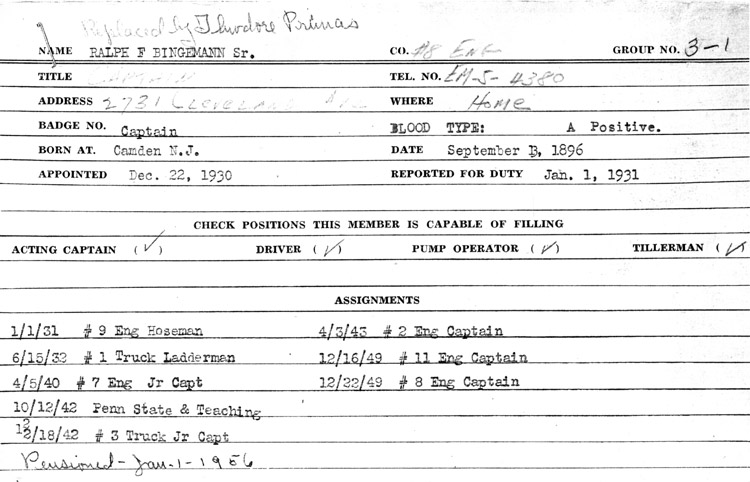 Replaced by Theodore Primas
NAME RALPH F BINGEMANN Sr. CO. #8 ENG GROUP NO. 3-1
TITLE CAPTAIN TEL. NO. EM-5-4380
ADDRESS 2731 Cleveland Ave WHERE Home
BADGE NO. Captain BLOOD TYPE: A Positive.
BORN AT. Camden N.J. DATE September 13, 1896
APPOINTED Dec. 22, 1930 REPORTED FOR DUTY Jan. 1, 1931
CHECK POSITIONS THIS MEMBER IS CAPABLE OF FILLING
ACTING CAPTAIN (✓) DRIVER (✓) PUMP OPERATOR (✓) TILLERMAN (✓)
ASSIGNMENTS
1/1/31 # 9 Eng Hoseman 4/3/43 # 2 Eng Captain
6/15/32 # 1 Truck Ladderman 12/16/49 # 11 Eng Captain
4/5/40 # 7 Eng Jr Capt 12/22/49 # 8 Eng Captain
10/12/42 Penn State & Teaching
12/18/42 # 3 Truck Jr Capt
Pensioned - Jan-1-1956